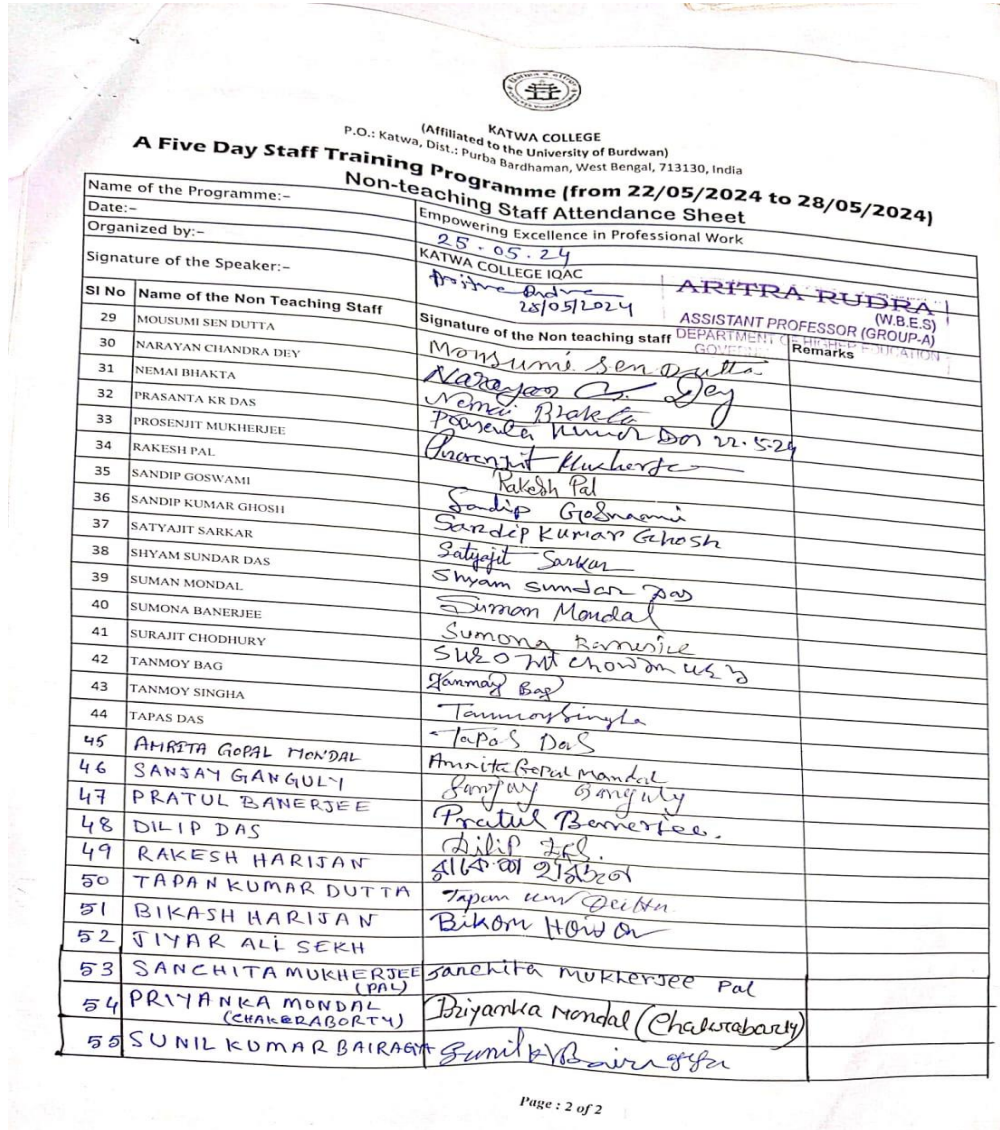 KATWA COLLEGE
(Affiliated to the University of Burdwan)
P.O.: Katwa, Dist.: Purba Bardhaman, West Bengal, 713130, India
A Five Day Staff Training Programme (from 22/05/2024 to 28/05/2024)
Non-teaching Staff Attendance Sheet
Name of the Programme:- Empowering Excellence in Professional Work
Date:- 25.05.24
Organized by:- KATWA COLLEGE IQAC
Signature of the Speaker:- 28/05/2024
ARITRA RUDRA
(W.B.E.S)
ASSISTANT PROFESSOR (GROUP-A)
DEPARTMENT OF HIGHER EDUCATION
Sl No Name of the Non Teaching Staff Signature of the Non teaching staff Remarks
29 MOUSUMI SEN DUTTA Mousumi Sen Dutta
30 NARAYAN CHANDRA DEY Narayan Ch. Dey
31 NEMAI BHAKTA Nemai Bhakta
32 PRASANTA KR DAS Prasanta Kumar Das 22.5.24
33 PROSENJIT MUKHERJEE Prosenjit Mukherjee
34 RAKESH PAL Rakesh Pal
35 SANDIP GOSWAMI Sandip Goswami
36 SANDIP KUMAR GHOSH Sandip Kumar Ghosh
37 SATYAJIT SARKAR Satyajit Sarkar
38 SHYAM SUNDAR DAS Shyam Sundar Das
39 SUMAN MONDAL Suman Mondal
40 SUMONA BANERJEE Sumona Banerjee
41 SURAJIT CHODHURY
42 TANMOY BAG Tanmay Bag
43 TANMOY SINGHA Tanmoy Singha
44 TAPAS DAS Tapas Das
45 AMRITA GOPAL MONDAL Amrita Gopal Mandal
46 SANJAY GANGULY Sanjay Ganguly
47 PRATUL BANERJEE Pratul Banerjee.
48 DILIP DAS Dilip
49 RAKESH HARIJAN
50 TAPAN KUMAR DUTTA Tapan
51 BIKASH HARIJAN
52 JIYAR ALI SEKH
53 SANCHITA MUKHERJEE (PAL) Sanchita Mukherjee Pal
54 PRIYANKA MONDAL (CHAKERABORTY) Priyanka Mondal (Chakraborty)
55 SUNIL KUMAR BAIRAGYA Sunil Kr Bairagya
Page : 2 of 2